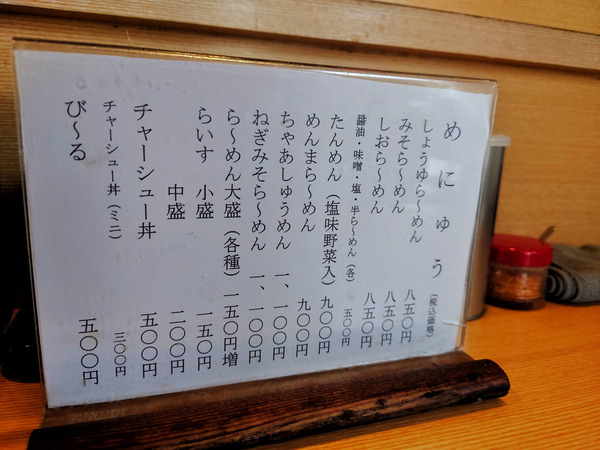 めにゅう（税込価格）
しょうゆら～めん 八五〇円
みそら～めん 八五〇円
しおら～めん 八五〇円
醤油・味噌・塩・半ら～めん（各） 五〇〇円
たんめん（塩味野菜入） 九〇〇円
めんまら～めん 九〇〇円
ちゃあしゅうめん 一、一〇〇円
ねぎみそら～めん 一、一〇〇円
ら～めん大盛（各種） 一五〇円増
らいす 小盛 一五〇円
中盛 二〇〇円
チャーシュー丼 五〇〇円
チャーシュー丼（ミニ） 三〇〇円
び～る 五〇〇円